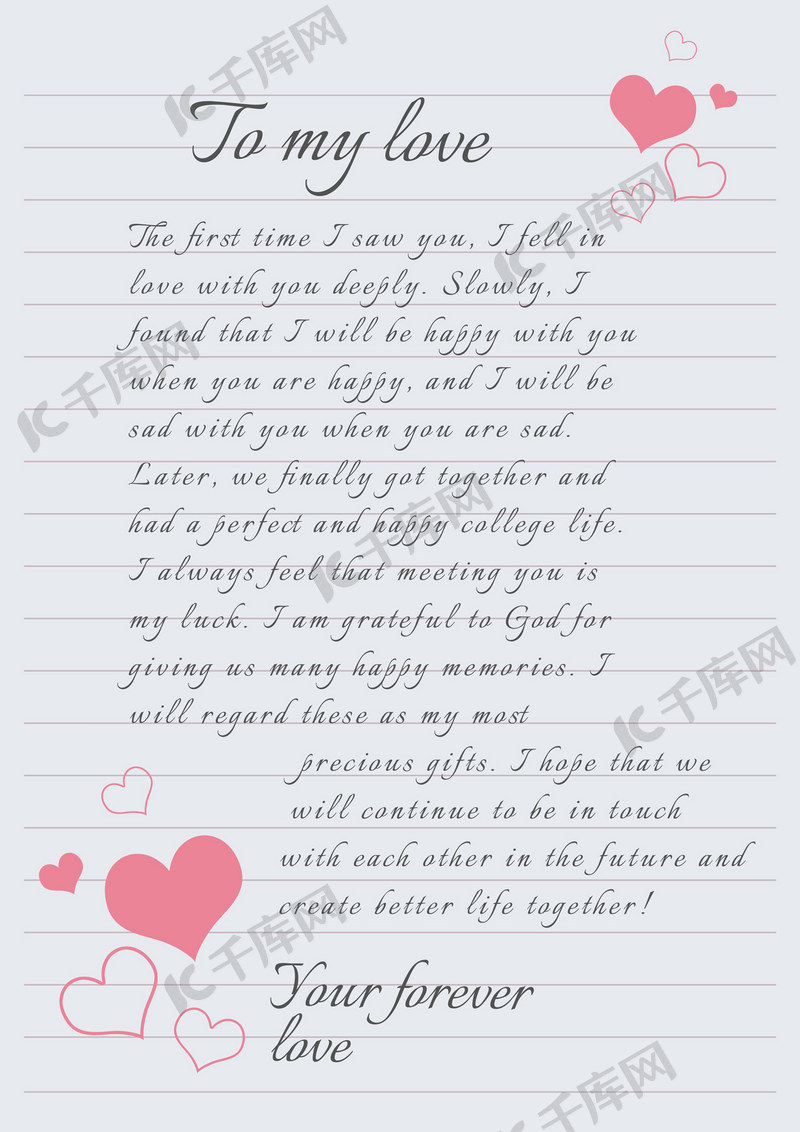 To my love
The first time I saw you, I fell in
love with you deeply. Slowly, I
found that I will be happy with you
when you are happy, and I will be
sad with you when you are sad.
Later, we finally got together and
had a perfect and happy college life.
I always feel that meeting you is
my luck. I am grateful to God for
giving us many happy memories. I
will regard these as my most
precious gifts. I hope that we
will continue to be in touch
with each other in the future and
create better life together!
Your forever
love
IC千库网
IC千库网
IC千库网
IC千库网
IC千库网
IC千库网
千库网